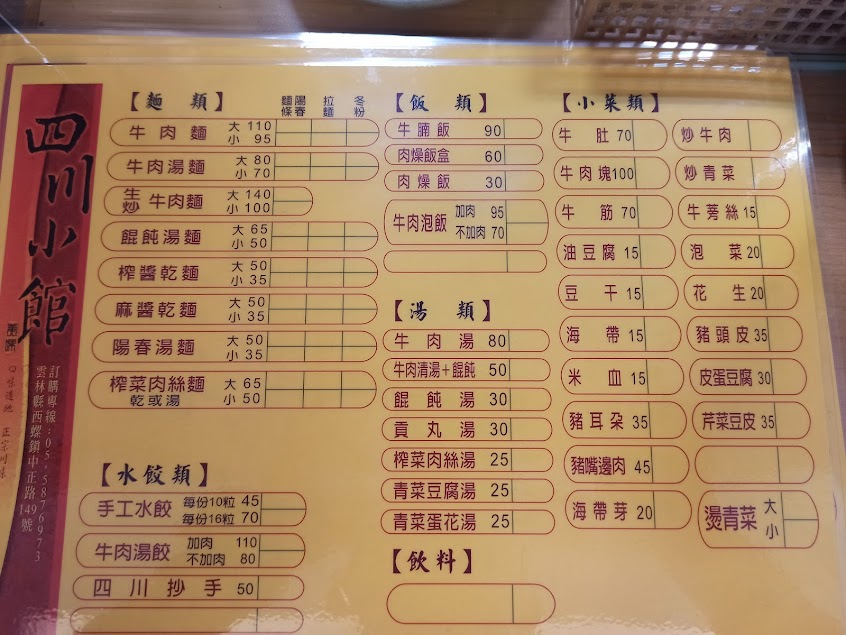 四川小館
訂購專線：05-5876973
雲林縣西螺鎮中正路149號
【麵類】
陽春麵條 拉麵 冬粉
牛肉麵 大 110 小 95
牛肉湯麵 大 80 小 70
生炒牛肉麵 大 140 小 100
餛飩湯麵 大 65 小 50
榨醬乾麵 大 50 小 35
麻醬乾麵 大 50 小 35
陽春湯麵 大 50 小 35
榨菜肉絲麵 乾或湯 大 65 小 50
【水餃類】
手工水餃 每份10粒 45 每份16粒 70
牛肉湯餃 加肉 110 不加肉 80
四川抄手 50
【飯類】
牛腩飯 90
肉燥飯盒 60
肉燥飯 30
牛肉泡飯 加肉 95 不加肉 70
【湯類】
牛肉湯 80
牛肉清湯+餛飩 50
餛飩湯 30
貢丸湯 30
榨菜肉絲湯 25
青菜豆腐湯 25
青菜蛋花湯 25
【飲料】
【小菜類】
牛肚 70
牛肉塊 100
牛筋 70
油豆腐 15
豆干 15
海帶 15
米血 15
豬耳朵 35
豬嘴邊肉 45
海帶芽 20
炒牛肉
炒青菜
牛蒡絲 15
泡菜 20
花生 20
豬頭皮 35
皮蛋豆腐 30
芹菜豆皮 35
燙青菜 大 小